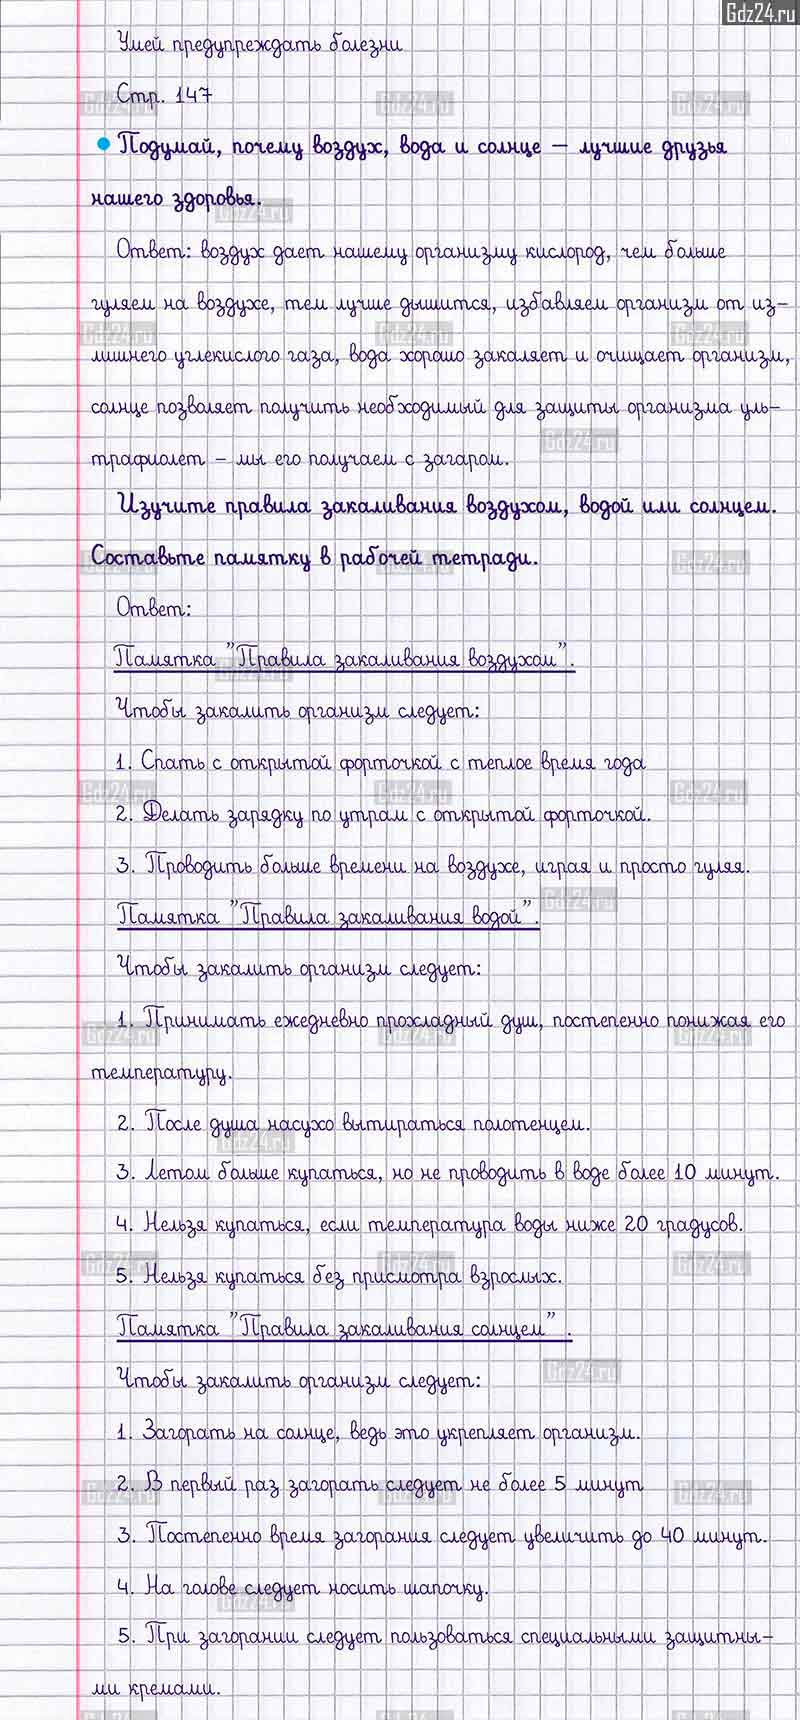 Gdz24.ru
Умей предупреждать болезни
Стр. 147
Подумай, почему воздух, вода и солнце – лучшие друзья
нашего здоровья.
Ответ: воздух дает нашему организму кислород, чем больше
гуляем на воздухе, тем лучше дышится, избавляем организм от из-
лишнего углекислого газа, вода хорошо закаляет и очищает организм,
солнце позволяет получить необходимый для защиты организма уль-
трафиолет – мы его получаем с загаром.
Изучите правила закаливания воздухом, водой или солнцем.
Составьте памятку в рабочей тетради.
Ответ:
Памятка "Правила закаливания воздухом".
Чтобы закалить организм следует:
1. Спать с открытой форточкой с теплое время года
2. Делать зарядку по утрам с открытой форточкой.
3. Проводить больше времени на воздухе, играя и просто гуляя.
Памятка "Правила закаливания водой".
Чтобы закалить организм следует:
1. Принимать ежедневно прохладный душ, постепенно понижая его
температуру.
2. После душа насухо вытираться полотенцем.
3. Летом больше купаться, но не проводить в воде более 10 минут.
4. Нельзя купаться, если температура воды ниже 20 градусов.
5. Нельзя купаться без присмотра взрослых.
Памятка "Правила закаливания солнцем" .
Чтобы закалить организм следует:
1. Загорать на солнце, ведь это укрепляет организм.
2. В первый раз загорать следует не более 5 минут
3. Постепенно время загорания следует увеличить до 40 минут.
4. На голове следует носить шапочку.
5. При загорании следует пользоваться специальными защитны-
ми кремами.